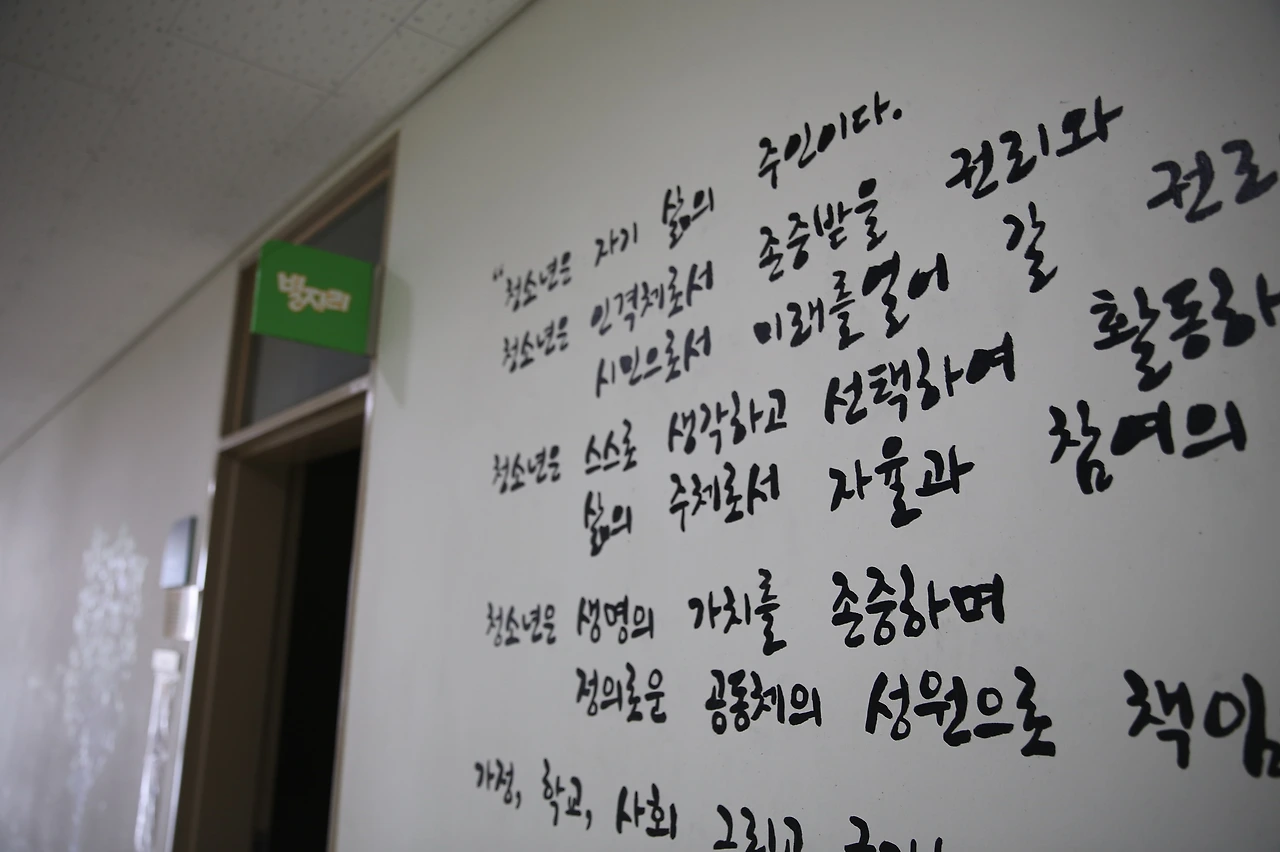 별자리
"청소년은 자기 삶의 주인이다.
청소년은 인격체로서 존중받을 권리와
시민으로서 미래를 열어 갈 권리
청소년은 스스로 생각하고 선택하여 활동하
삶의 주체로서 자율과 참여의
청소년은 생명의 가치를 존중하며
정의로운 공동체의 성원으로 책임
가정, 학교, 사회 그리고